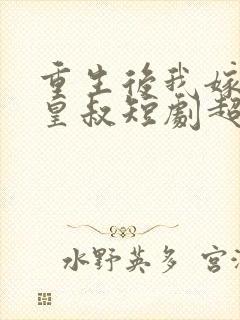 重生後我嫁
皇叔短劇超
水野英多 宮